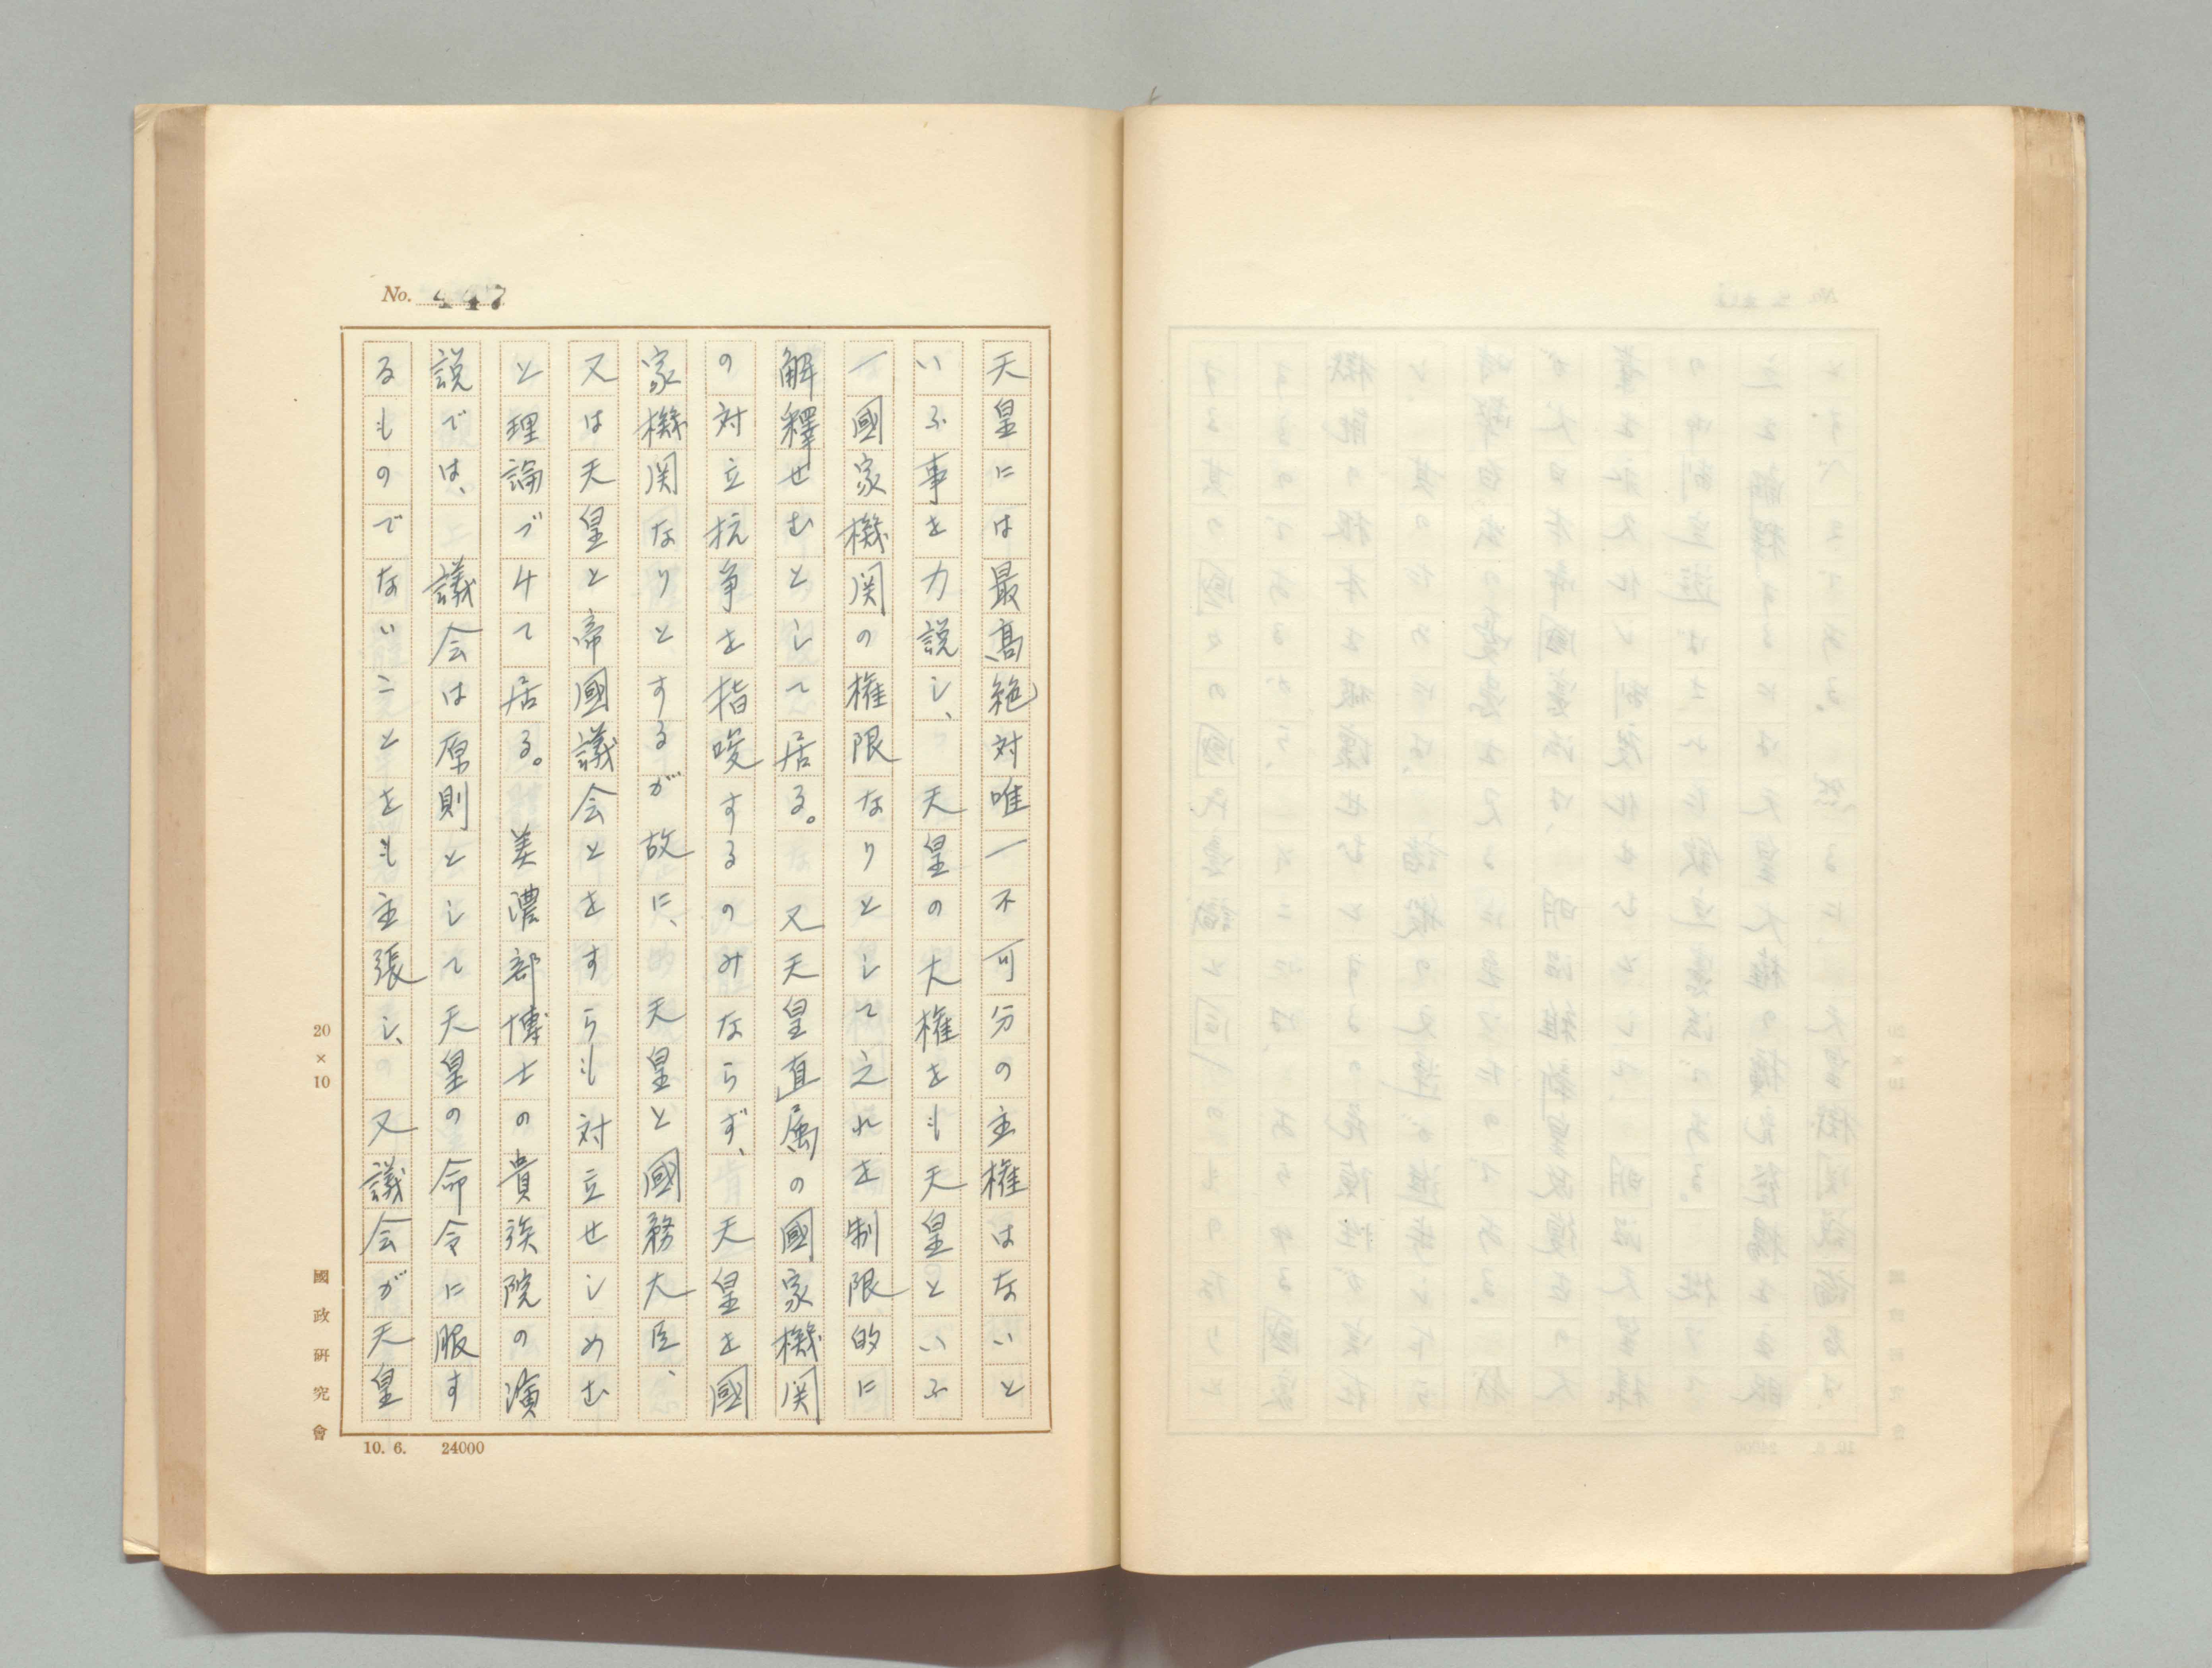 No. 447
天皇には最高絶対唯一不可分の主権はないと
いふ事を力説し、天皇の大権をも天皇といふ
一國家機関の権限なりとして之れを制限的に
解釋せむとして居る。又天皇直属の國家機関
の対立抗争を指唆するのみならず、天皇を國
家機関なりとするが故に、天皇と國務大臣、
又は天皇と帝國議会とをすらも対立せしめむ
と理論づけて居る。美濃部博士の貴族院の演
説では、議会は原則として天皇の命令に服す
るものでないことをも主張し、又議会が天皇
20×10
國政研究會
10. 6. 24000